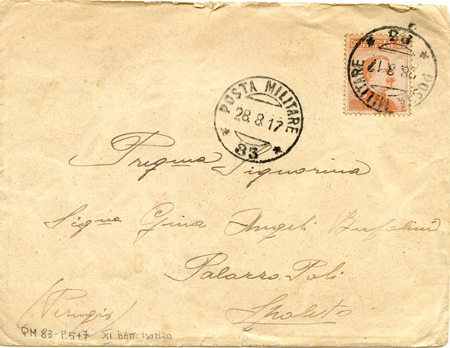 POSTA MILITARE
28.8.17
83
POSTA MILITARE
28.8.17
83
Pregma Signorina
Signa Gina Angeli Bufalini
Palazzo Poli
(Perugia) Spoleto
PM 83 - P.5+7 XI BATT.